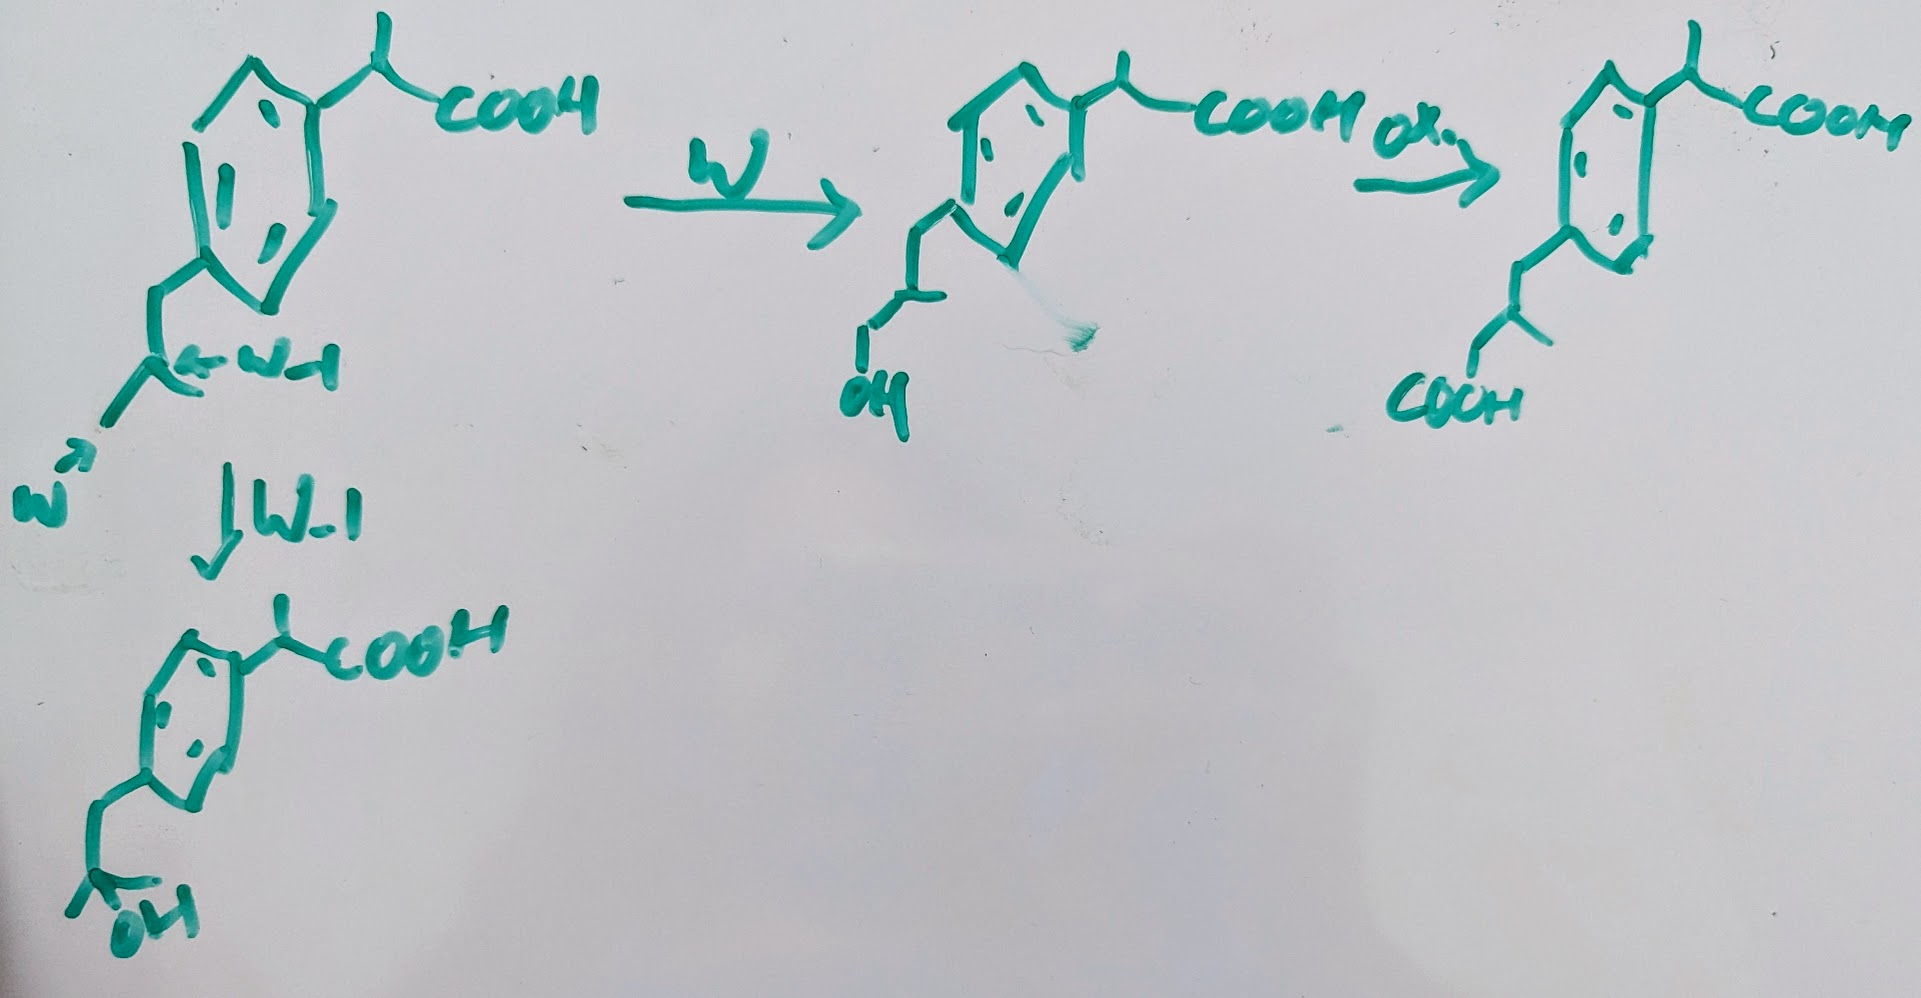 COOH
W
COOH
ox.
COOH
W-1
OH
COOH
W
W-1
COOH
OH